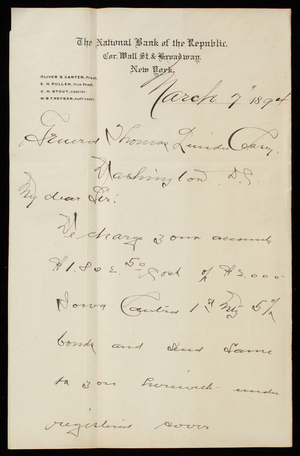 The National Bank of the Republic.
Cor. Wall St. & Broadway.
New York,
OLIVER S. CARTER, Prest.
E. H. PULLEN, Vice Prest.
C. H. STOUT, Cashier.
W. B. TREYSER, Asst. Cash.
March 7" 1894
General Thomas Lincoln Casey,
Washington D.C.
My dear Sir:
We charge your account
$1,802 50 cost of $2000
Iowa Central 1st Mtg 5%
bonds and send same
to you herewith under
registered cover